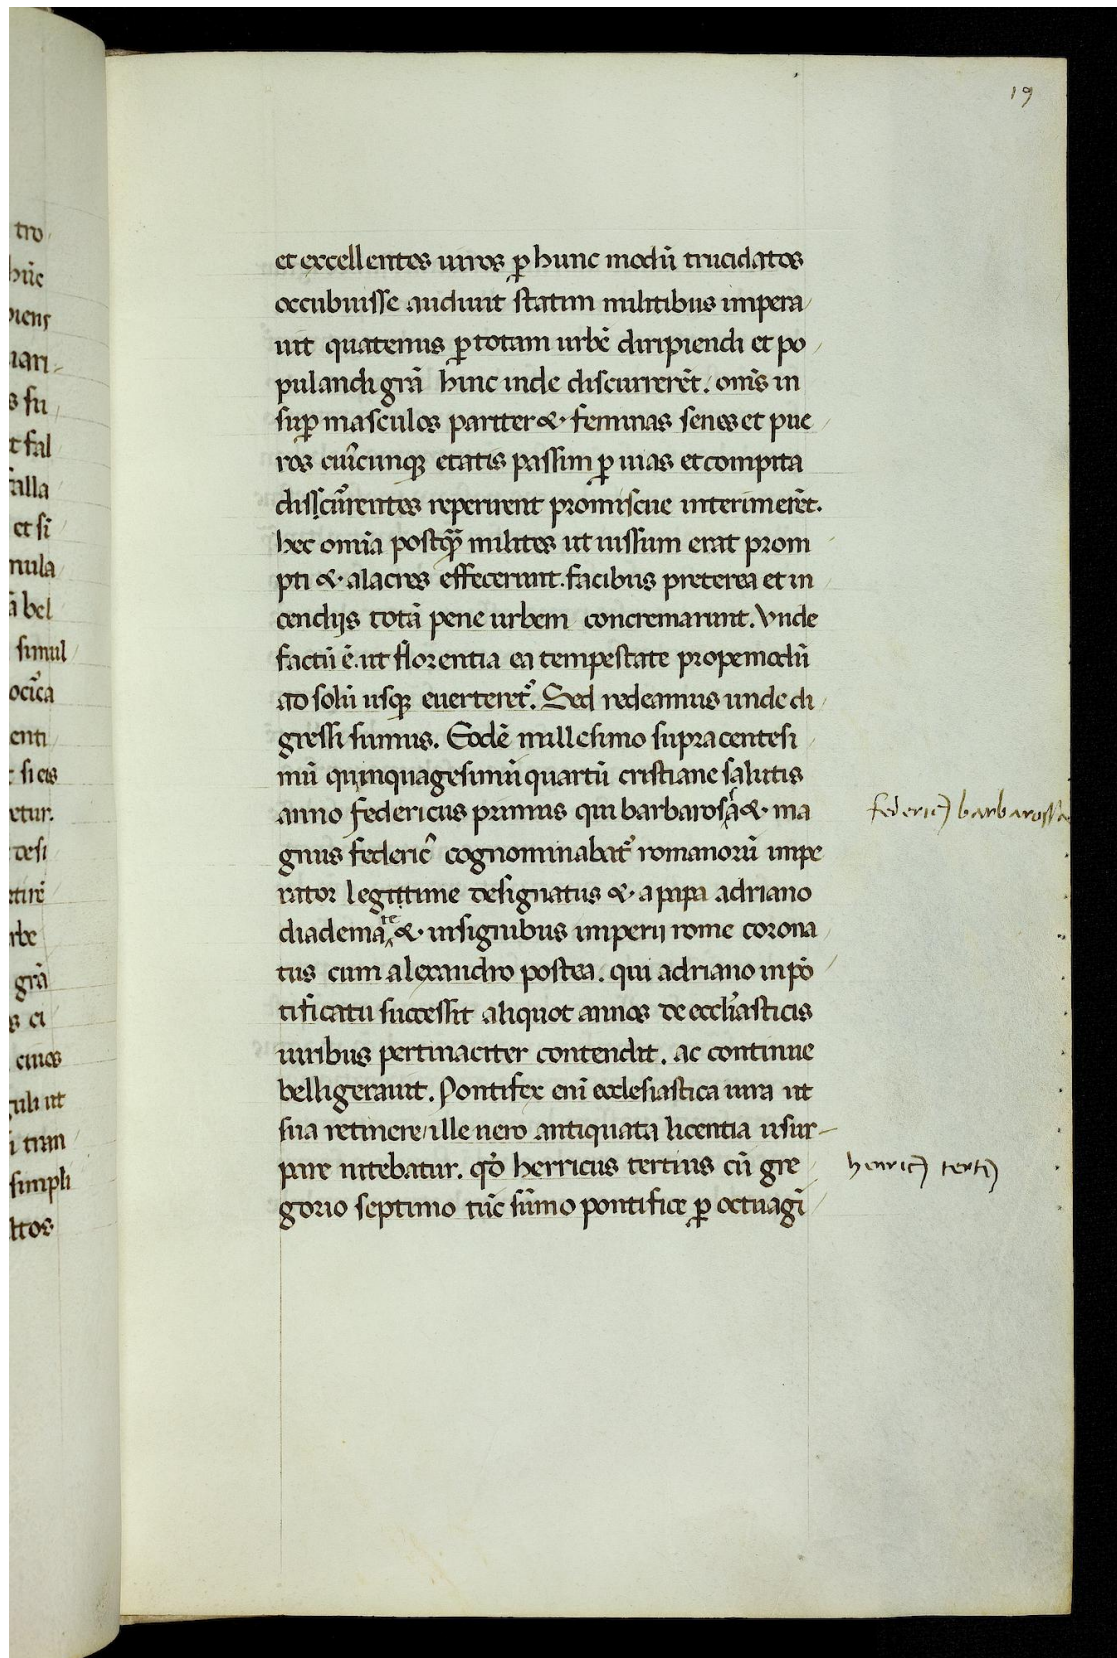 19
et excellentes uiros ꝑ hunc modū trucidatos
occubuisse audiuit statim militibus impera
uit quatenus ꝑ totam urbē diripiendi et po
pulandi grā hinc inde discurrerēt. om̄s in
suꝑ masculos pariter & feminas senes et pue
ros cuīcunqꝫ etatis passim ꝑ uias et compita
discūrentes reperirent promiscue interimerēt.
hec omīa postqꝫ̄ milites ut iussum erat prom
pti & alacres effecerunt. facibus preterea et in
cendijs totā pene urbem concremarunt. Vnde
factū ē. ut florentia ea tempestate propemodū
ad solū usqꝫ euerteret᷑. Sed redeamus unde di
gressi sumus. Eodē millesimo supra centesi
mū quinquagesimū quartū cristiane salutis
anno federicus primus qui barbarosā & ma
gnus federic̄ cognominabat᷑ romanorū impe
rator legittime designatus & a papa adriano
diademate & insignibus imperij rome corona
tus cum alexandro postea. qui adriano in pō
tificatu successit aliquot annos de ecclīasticis
iuribus pertinaciter contendit. ac continue
belligerauit. Pontifex enī ecclesiastica iura ut
sua retinere/ ille uero antiquata licentia usur-
pare nitebatur. qō herricus tertius cū gre
gorio septimo tūc sūmo pontifice ꝑ octuagi
federicꝰ barbarossa
henricꝰ tertiꝰ